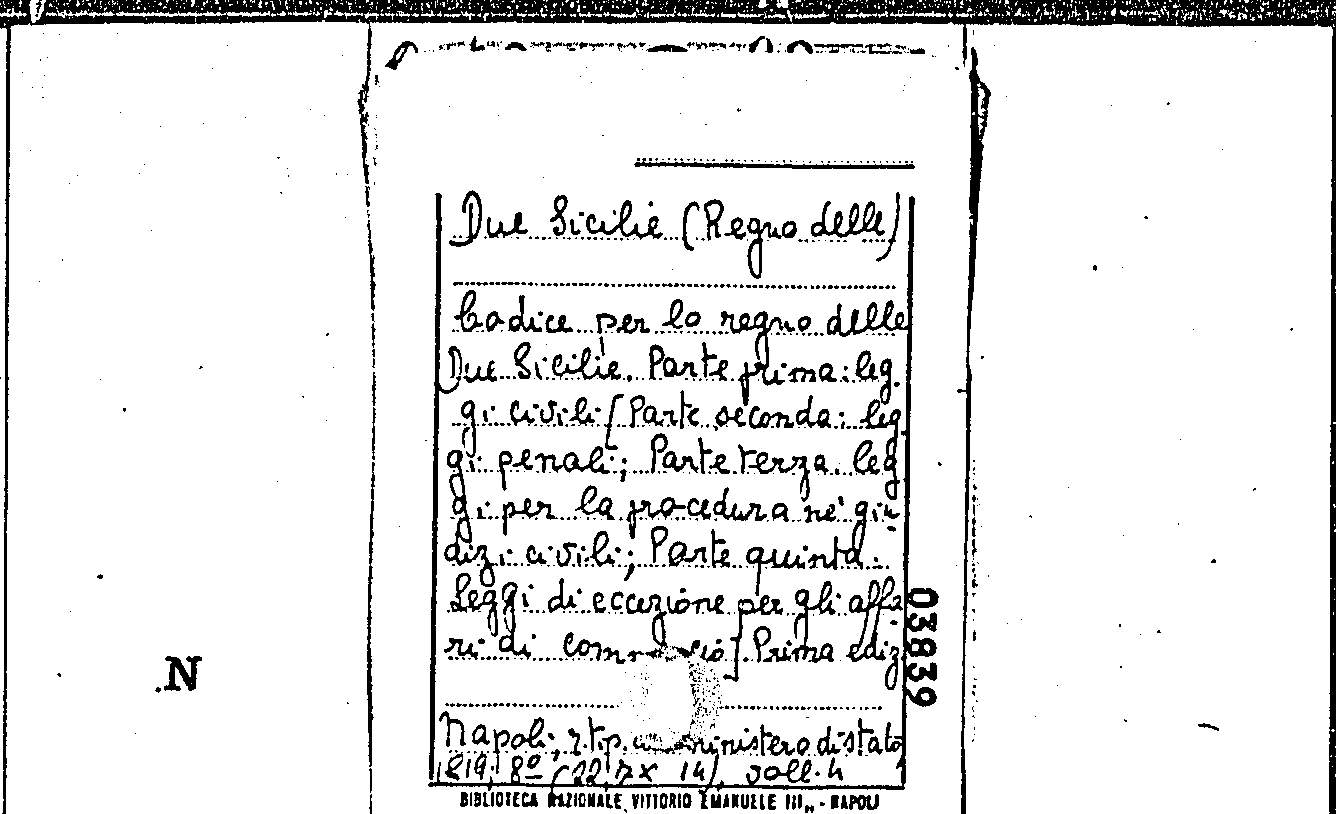 Due Sicilie (Regno delle)
Codice per lo regno delle
Due Sicilie. Parte prima: leg
gi civili [Parte seconda: leg
gi penali; Parte terza. leg
gi per la procedura ne' giu
dizi civili; Parte quinta:
Leggi di eccezione per gli affa
ri di commercio]. Prima ediz.
03839
N
Napoli, r. tip. ministero di stato
1819, 8º (22,7 x 14), voll. 4
BIBLIOTECA NAZIONALE VITTORIO EMANUELE III„ - NAPOLI